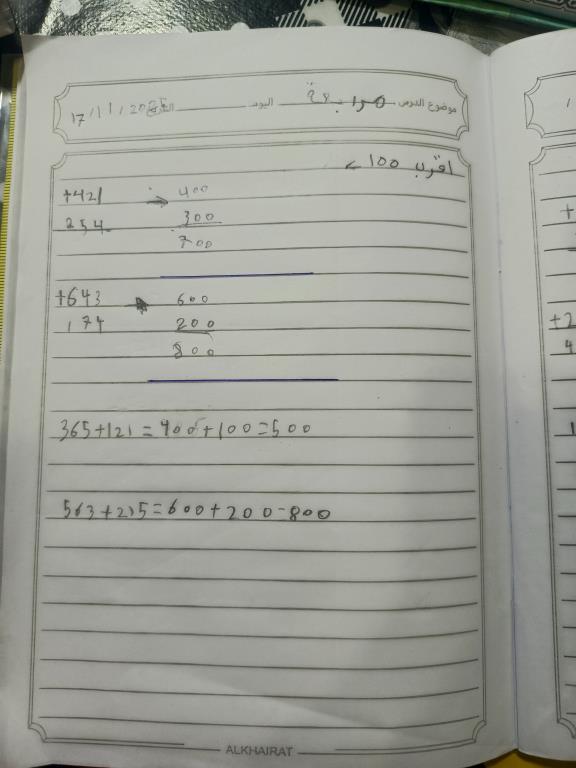 موضوع الدرس مراجعة اليوم التاريخ 17/11/2025
اقرب 100 >
+421 → 400
254 300
700
+643 → 600
174 200
800
365+121=400+100=500
563+215=600+200=800
ALKHAIRAT